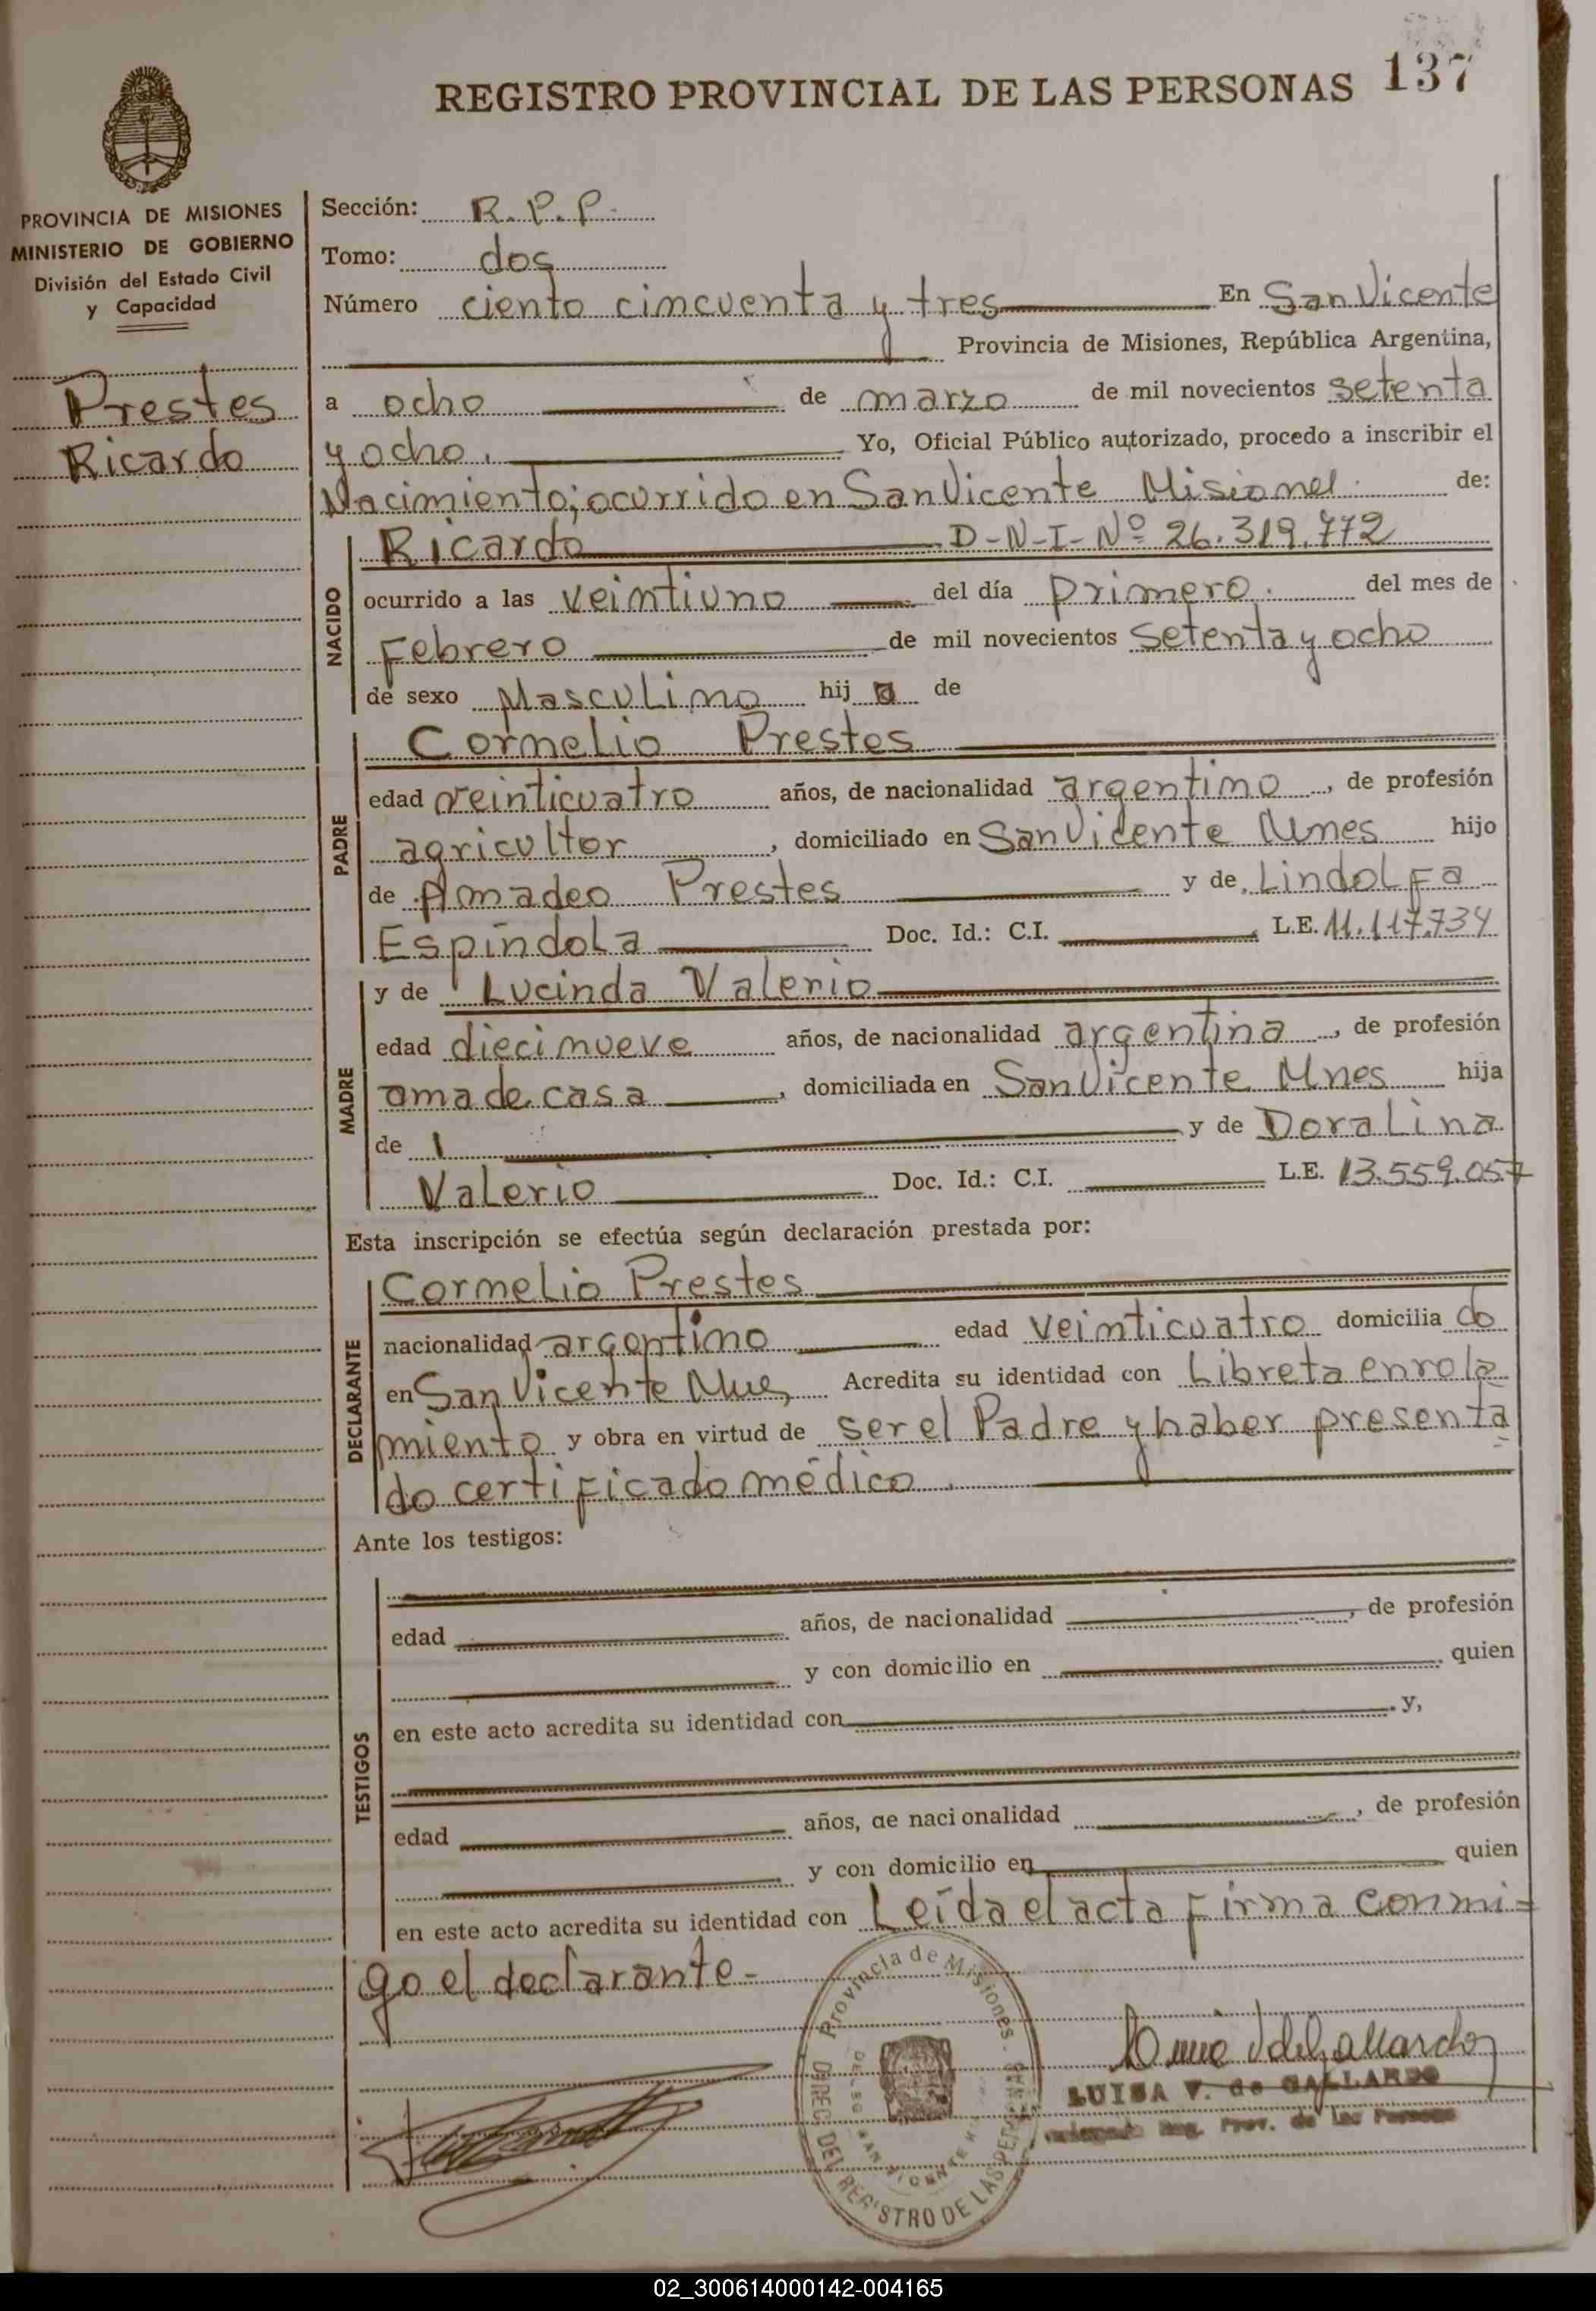 REGISTRO PROVINCIAL DE LAS PERSONAS 137
PROVINCIA DE MISIONES
MINISTERIO DE GOBIERNO
División del Estado Civil
y Capacidad
Prestes
Ricardo
Sección: R.P.P.
Tomo: dos
Número ciento cincuenta y tres En San Vicente
Provincia de Misiones, República Argentina,
a ocho de marzo de mil novecientos setenta
y ocho. Yo, Oficial Público autorizado, procedo a inscribir el
Nacimiento; ocurrido en San Vicente Misiones. de:
NACIDO
Ricardo D-N-I-Nº 26.319.772
ocurrido a las veintiuno del día primero. del mes de
Febrero de mil novecientos Setenta y ocho
de sexo Masculino hij o de
PADRE
Cornelio Prestes
edad veinticuatro años, de nacionalidad argentino, de profesión
agricultor, domiciliado en San Vicente Mnes hijo
de Amadeo Prestes y de Lindolfa
Espíndola Doc. Id.: C.I. L.E. 11.117.734
MADRE
y de Lucinda Valerio
edad diecinueve años, de nacionalidad argentina, de profesión
ama de casa, domiciliada en San Vicente Mnes hija
de y de Doralina
Valerio Doc. Id.: C.I. L.E. 13.559.057
Esta inscripción se efectúa según declaración prestada por:
DECLARANTE
Cornelio Prestes
nacionalidad argentino edad veinticuatro domicilia do
en San Vicente Mnes, Acredita su identidad con Libreta enrola
miento y obra en virtud de ser el Padre y haber presenta
do certificado médico.
Ante los testigos:
TESTIGOS
edad años, de nacionalidad, de profesión
y con domicilio en quien
en este acto acredita su identidad con y,
edad años, de nacionalidad, de profesión
y con domicilio en quien
en este acto acredita su identidad con Leída el acta firma conmi-
go el declarante-
Provincia de Misiones
DIREC. DEL REGISTRO DE LAS PERSONAS
SAN VICENTE
LUISA V. de GALLARDO
Reg. Prov. de las Personas
02_300614000142-004165